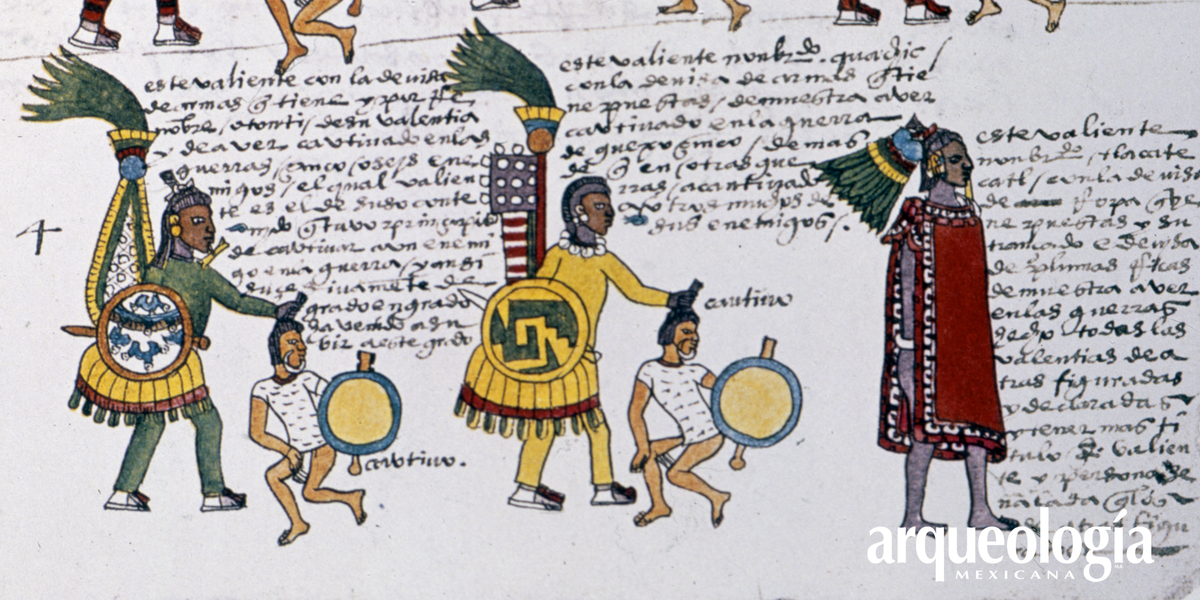 este valiente con la devisa
de armas q̃ tiene y por
nõbre / otonti / de su valentia
y de aver cautivado en las
guerras / cinco o seis ene
migos / el qual valien
te es el de suso conte
nido q̃ tuvo prinçipio
de cautivar a un enemi
go en la guerra / y ansi
de
grado en grado
a su
bir a este grado
cautivo.
4
este valiente nonbrdo. quachic
con la devisa de armas q̃ tie
ne ppuestas / demuestra aver
cautivado en la guerra
de guexoçinco / demas
de q̃ en otras gue
rras / a cautivado
otros muchos de
sus enemigos /.
cautivo
este valiente
nonbrdo / tlacate
catl / con la devisa
de ropa q̃
ne puestas y su
trançado e devisa
de plumas ricas
demuestra aver
en las guerras
hecho todas las
valentias de a
tras figuradas
y declaradas
y tener mas ti
tulo de valien
te y persona se
ñalada q̃ los
de atras figu
arqueología
MEXICANA